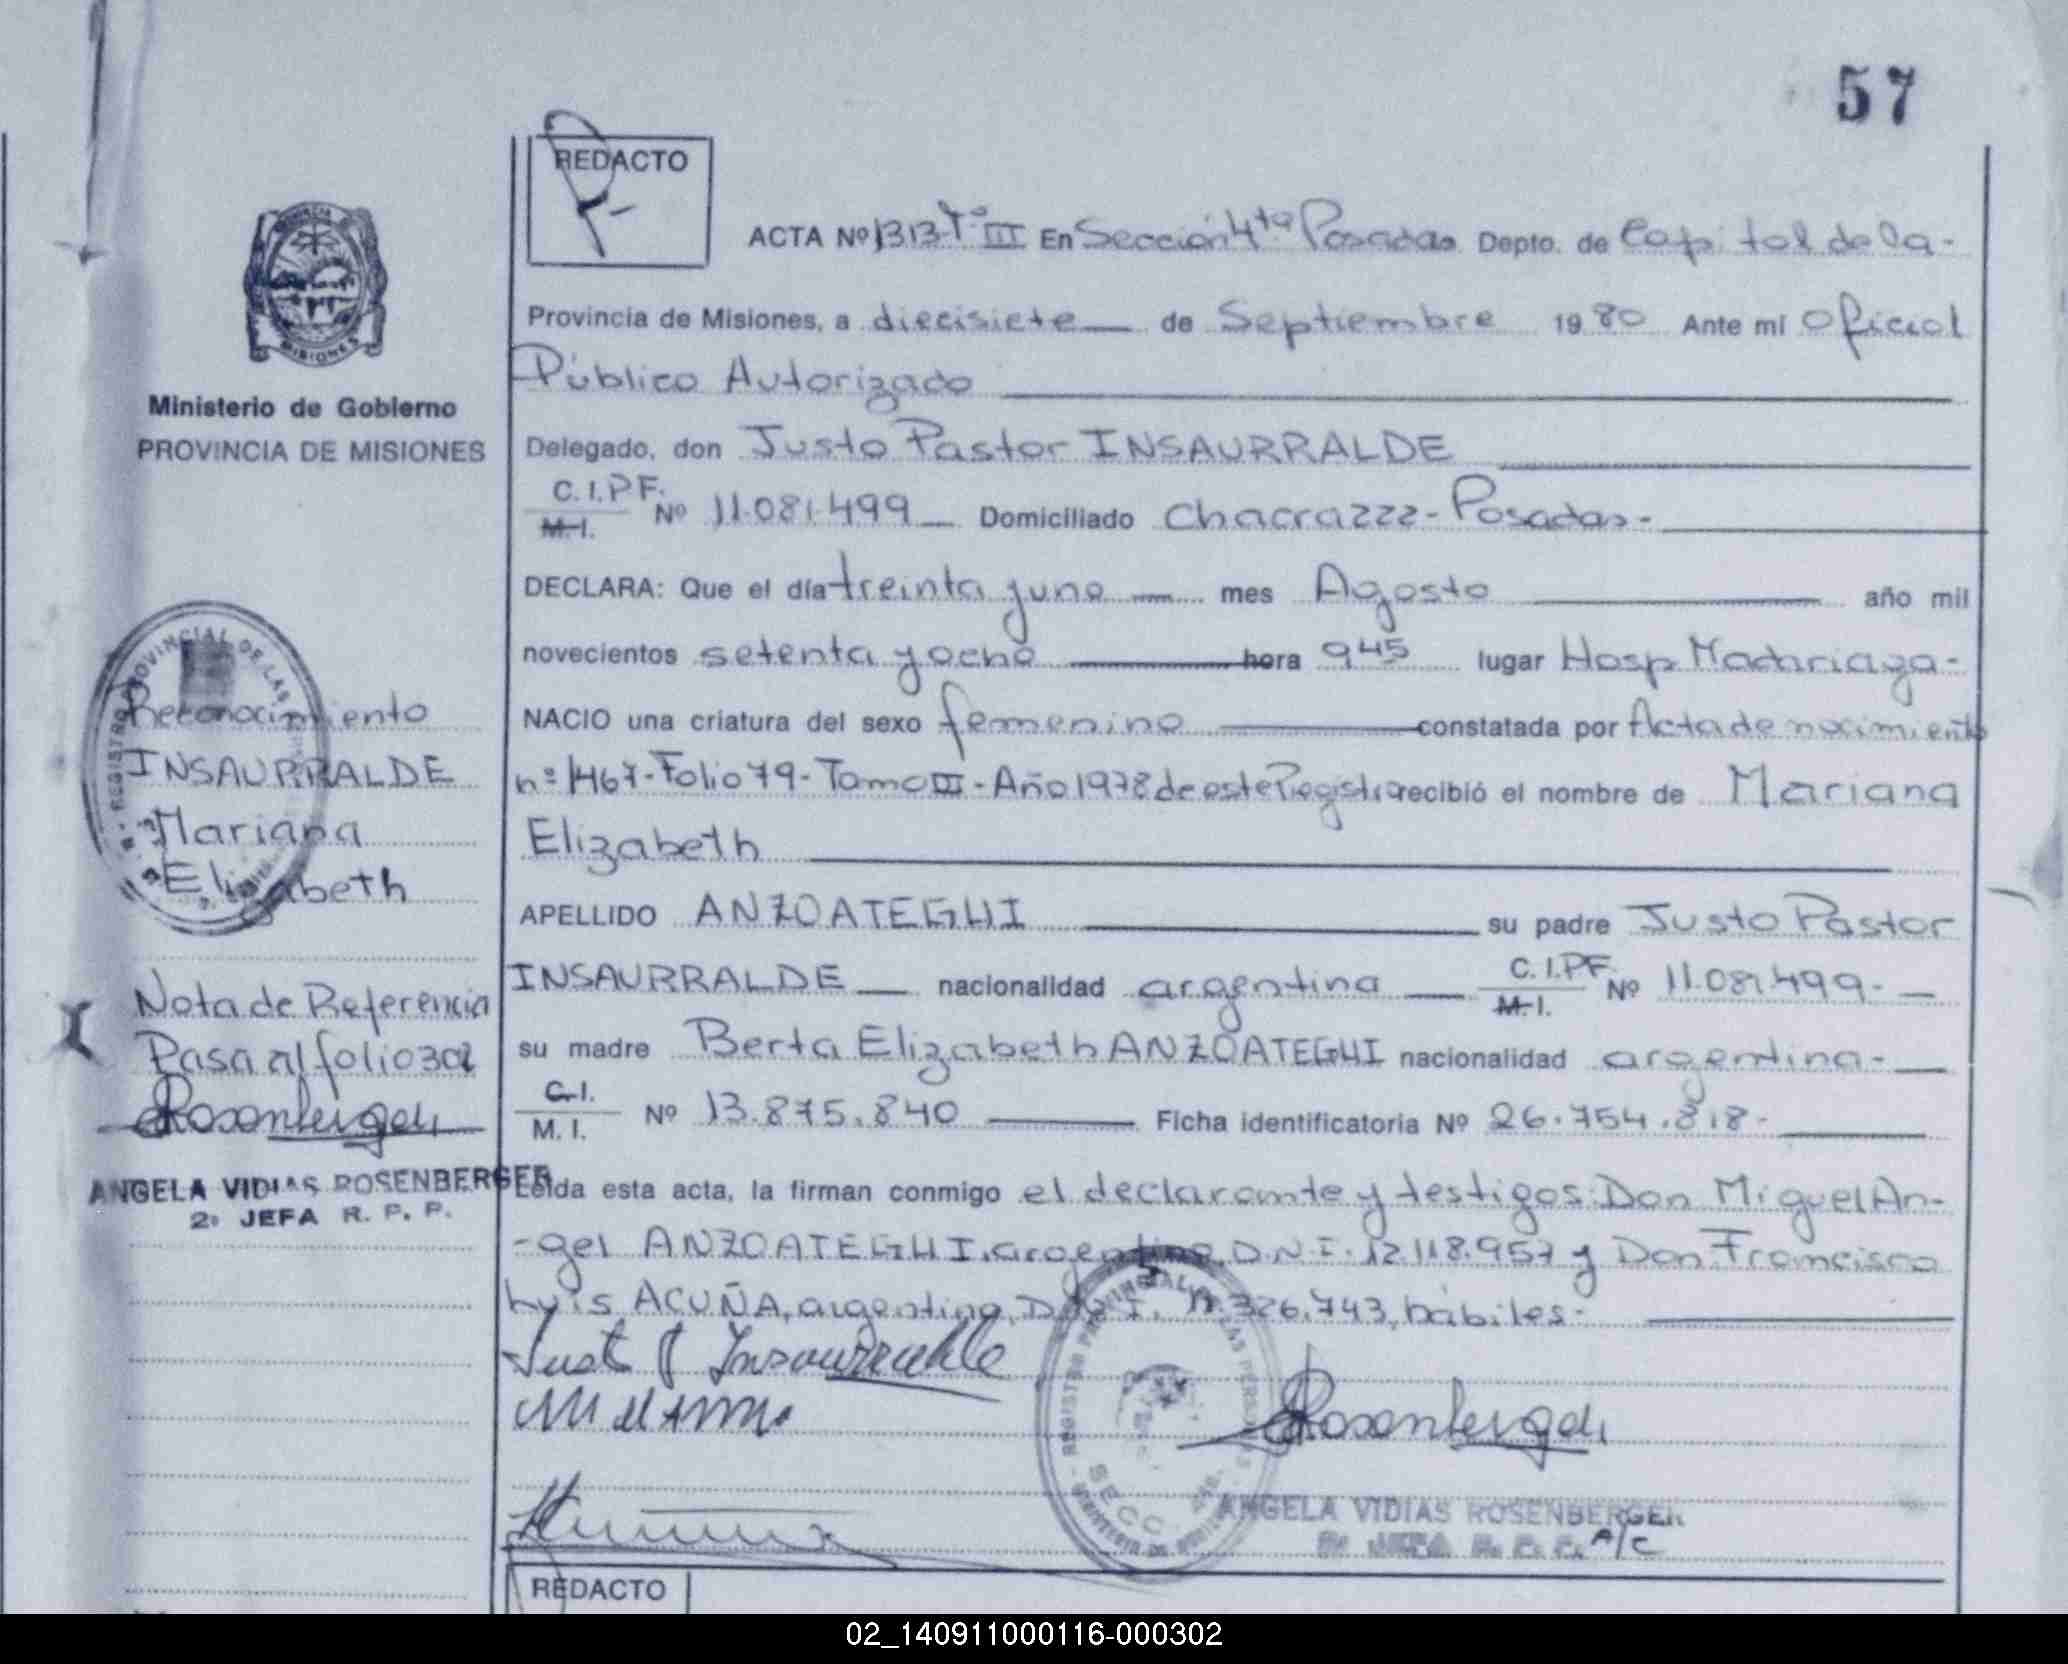 57
REDACTO
ACTA Nº 1313 Tº III En Sección 4ta Posadas Depto. de Capital de la-
Provincia de Misiones, a diecisiete de Septiembre 1980 Ante mi Oficial
Público Autorizado
Delegado, don Justo Pastor INSAURRALDE
C.I.P.F.
M.I. Nº 11.081.499 Domiciliado Chacra 222-Posadas-
DECLARA: Que el día treinta y uno mes Agosto año mil
novecientos setenta y ocho hora 945 lugar Hosp Madariaga-
NACIO una criatura del sexo femenino constatada por Acta de nacimiento
nº 1467-Folio 79-Tomo III-Año 1978 de este Registro recibió el nombre de Mariana
Elizabeth
APELLIDO ANZOATEGUI su padre Justo Pastor
INSAURRALDE nacionalidad argentina C.I.P.F. M.I. Nº 11.081.499.-
su madre Berta Elizabeth ANZOATEGUI nacionalidad argentina-
C.I.
M.I. Nº 13.875.840 Ficha identificatoria Nº 26.754.818-
Leída esta acta, la firman conmigo el declarante y testigos: Don Miguel An-
-gel ANZOATEGUI, argentino, D.N.I. 12.118.957 y Don Francisco
Luis ACUÑA, argentino, D.N.I. 326.743, hábiles-
Justo P Insaurralde
Rosenberger
ANGELA VIDIAS ROSENBERGER
2º JEFA R. P. P. A/C
REDACTO
MISIONES
Ministerio de Gobierno
PROVINCIA DE MISIONES
REGISTRO PROVINCIAL DE LAS
Reconocimiento
INSAURRALDE
Mariana
Elizabeth
Nota de Referencia
Pasa al folio 302
Rosenberger
ANGELA VIDIAS ROSENBERGER
2º JEFA R. P. P.
REGISTRO PROVINCIAL DE LAS PERSONAS
SECC.
02_140911000116-000302